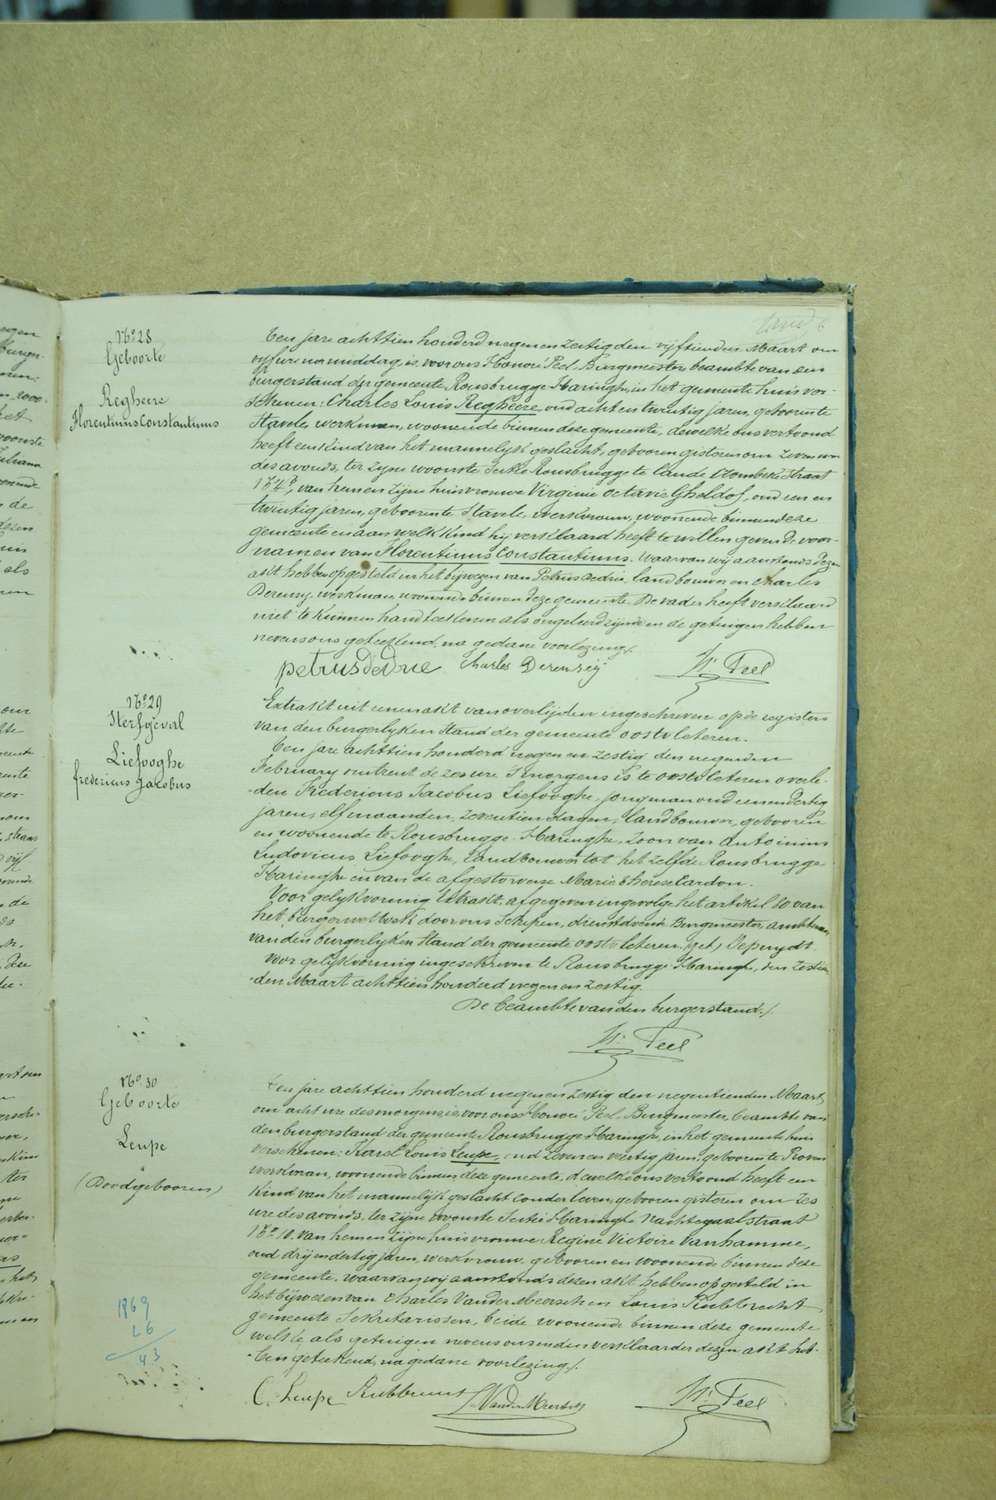 N° 28
Geboorte
Regheere
Florentinus Constantinus
Een jare achttien honderd negen en zestig den vyftienden Maart om
vyf ure namiddag, is voor ons Honoré Peel Burgmeester beambte van den
burgerstand der gemeente Rousbrugge-Haringhe, in het gemeente huis ver-
schenen: Charles Louis Regheere oud acht en twintig jaren, geboren te
Stavele, werkman, woonende binnen deze gemeente, dewelke ons vertoond
heeft een kind van het mannelyk geslacht, geboren gisteren om zeven ure
des avonds, ter zyne woonste Sectie Rousbrugge te lande straat
N° 4, van hem en zyne huisvrouwe Virginie Octavie Gheldof, oud een en
twintig jaren, geboren te Stavele, werkvrouw, woonende binnen deze
gemeente en aan welk kind hy verklaard heeft te willen geven de voor-
namen van Florentinus Constantinus. Waarvan wy aanstonds dezen
akt hebben opgesteld in het bywezen van Petrus Dedrie, landbouwer en Charles
Derensy, werkman woonende binnen deze gemeente. De vader heeft verklaard
niet te kunnen handteekenen als ongeleerd zynde en de getuigen hebben
nevens ons geteekend, na gedane voorlezing.
petrus dedrie Charles Derensey H. Peel
N° 29
Sterfgeval
Liefooghe
fredericus Jacobus
Extrakt uit eenen akt van overlyden ingeschreven op de registers
van den burgerlyken Stand der gemeente Oostvleteren.
Een jare achttien honderd negen en zestig den negenden
February omtrent de zes ure 's morgens is te Oostvleteren overle-
den Fredericus Jacobus Liefooghe, jongman oud een en dertig
jaren, elf maanden, zeventien dagen, landbouwer, geboren
en woonende te Rousbrugge-Haringhe, zoon van Antoinius
Ludovicus Liefooghe, landbouwer tot het zelfde Rousbrugge-
Haringhe en van de afgestorvene Marie Therese Cardon.
Voor gelykvormig Extrakt, afgegeven ingevolge het artikel 80 van
het burger wetboek door ons Schepen, dienstdoende Burgmeester, ambtenaar
van den burgerlyken Stand der gemeente Oostvleteren. (get.) Depuydt.
Voor gelykvormig ingeschreven te Rousbrugge Haringhe, den zestien-
den Maart achttien honderd negen en zestig.
De beambte van den burgerstand.
H. Peel
N° 30
Geboorte
Leupe
(Doodgebooren)
Een jare achttien honderd negen en zestig den negentienden Maart,
om acht ure des morgens is voor ons Honoré Peel Burgmeester, beambte van
den burgerstand der gemeente Rousbrugge Haringhe, in het gemeente huis
verschenen: Karel Louis Leupe, oud zeven en veertig jaren, geboren te Proven
werkman, woonende binnen deze gemeente, dewelke ons vertoond heeft een
kind van het mannelyk geslacht zonder leven, geboren gisteren om zes
ure des avonds, ter zyne woonste Sectie Haringhe Nachtegaal straat
N° 10, van hem en zyne huisvrouwe Regine Victoire Vanhamme,
oud dry en dertig jaren, werkvrouw, geboren en woonende binnen deze
gemeente, waarvan wy aanstonds dezen akt hebben opgesteld in
het bywezen van Charles Vander Meersch en Louis Rubbrecht
gemeente Sekretarissen, beide woonende binnen deze gemeente
welke als getuigen nevens ons en den verklaarder dezen akt heb-
ben geteekend, na gedane voorlezing.
1869
26
43
C. Leupe Rubbrecht C. VanderMeersch H. Peel